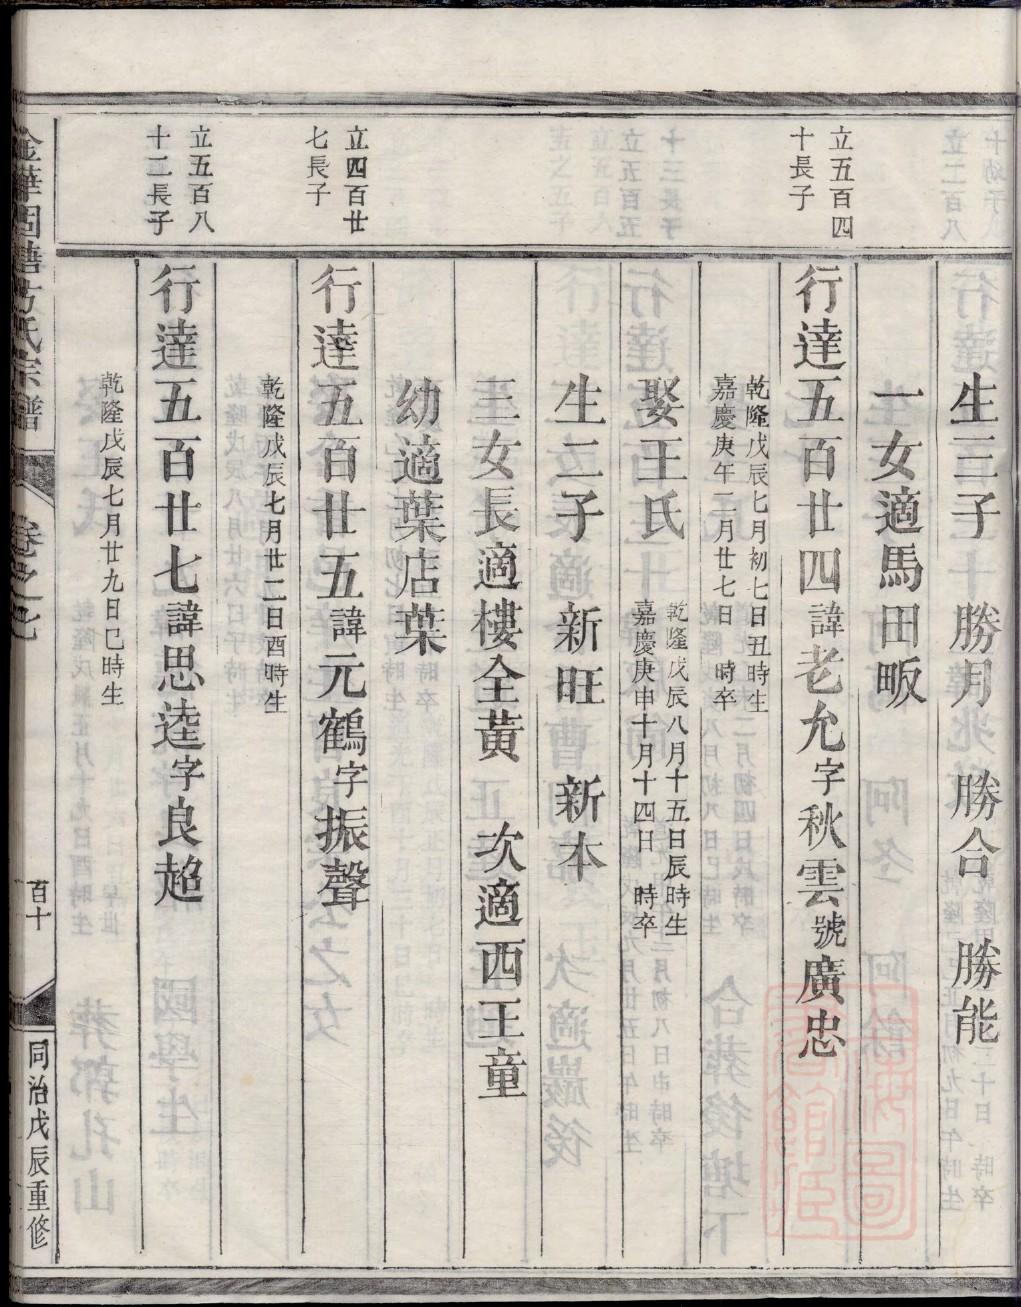 生三子　勝月　勝合　勝能
一女適馬田畈
立五百四
十長子
行達五百廿四諱老允字秋雲號廣忠
乾隆戊辰七月初七日丑時生
嘉慶庚午二月廿七日　時卒
娶王氏
乾隆戊辰八月十五日辰時生
嘉慶庚申十月十四日　時卒
生二子　新旺　新本
三女長適樓全黃　次適西王童
幼適葉店葉
立四百廿
七長子
行達五百廿五諱元鶴字振聲
乾隆戊辰七月廿二日酉時生
立五百八
十二長子
行達五百廿七諱思逵字良超
乾隆戊辰七月廿九日巳時生
金華固塘方氏宗譜
卷之七
百十
同治戊辰重修